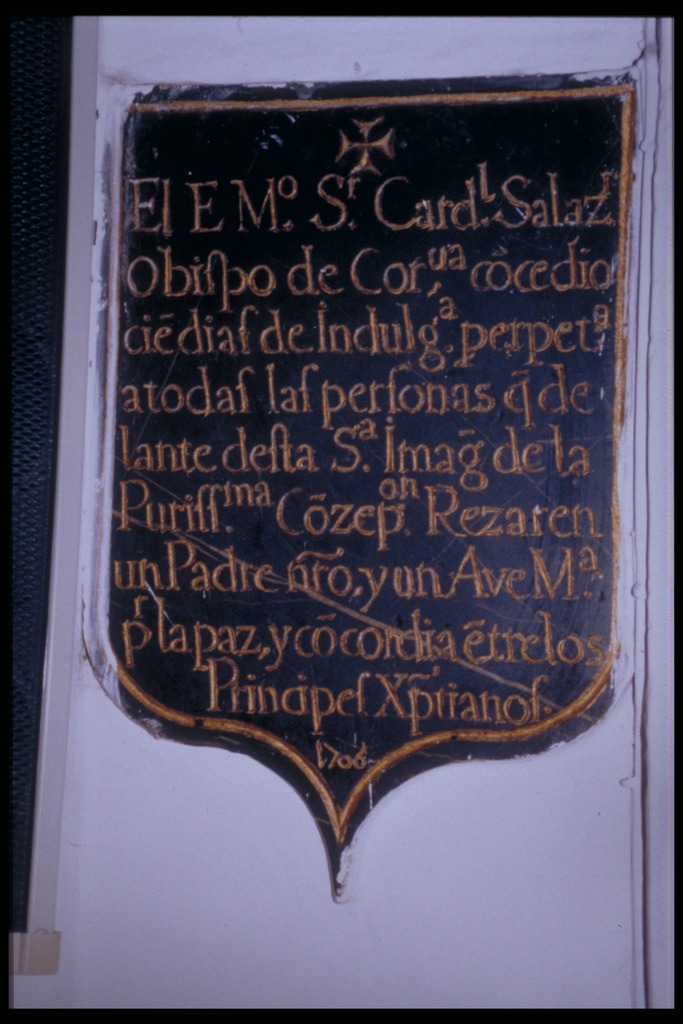 ✠
El E Mº. Sʳ. Cardˡ. Salazʳ.
Obiſpo de Corᵘᵃ, cõcedio
ciẽ diaſ de Indulgᵃ. perpetᵃ.
a todaſ laſ perſonas q̃ de
lante deſta Sᵃ. Imag̃ de la
Puriſſᵐᵃ. Cõzepᵒⁿ. Rezaren
un Padre nr̃o, y un Ave Mᵃ.
pʳ la paz, y cõcordia ẽtre los
Principeſ Xp̃tianoſ.
1706